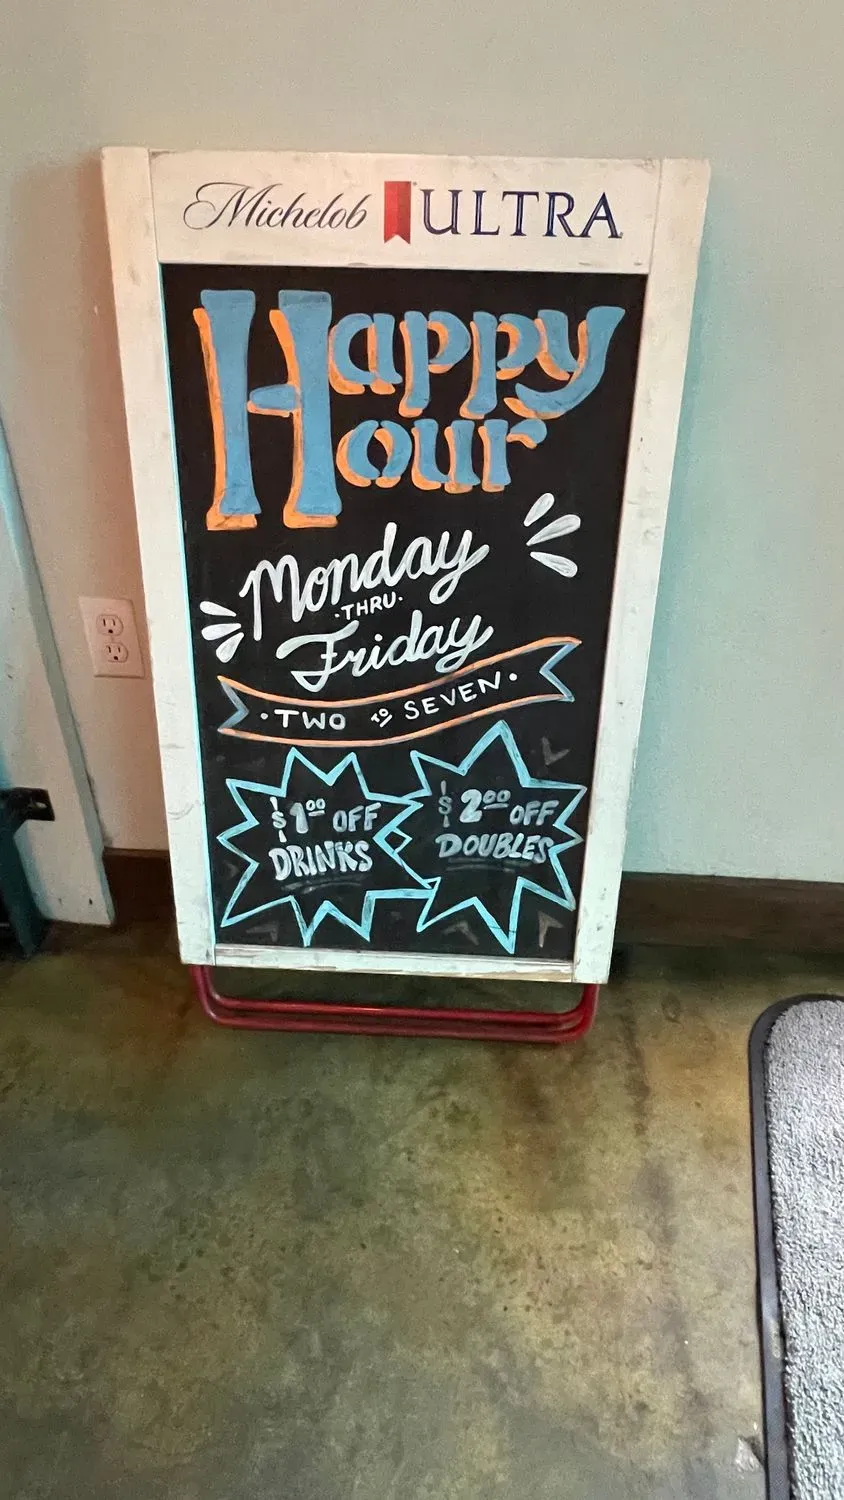 Michelob ULTRA
Happy
Hour
Monday
·THRU·
Friday
·TWO TO SEVEN·
$1⁰⁰ OFF
DRINKS
$2⁰⁰ OFF
DOUBLES